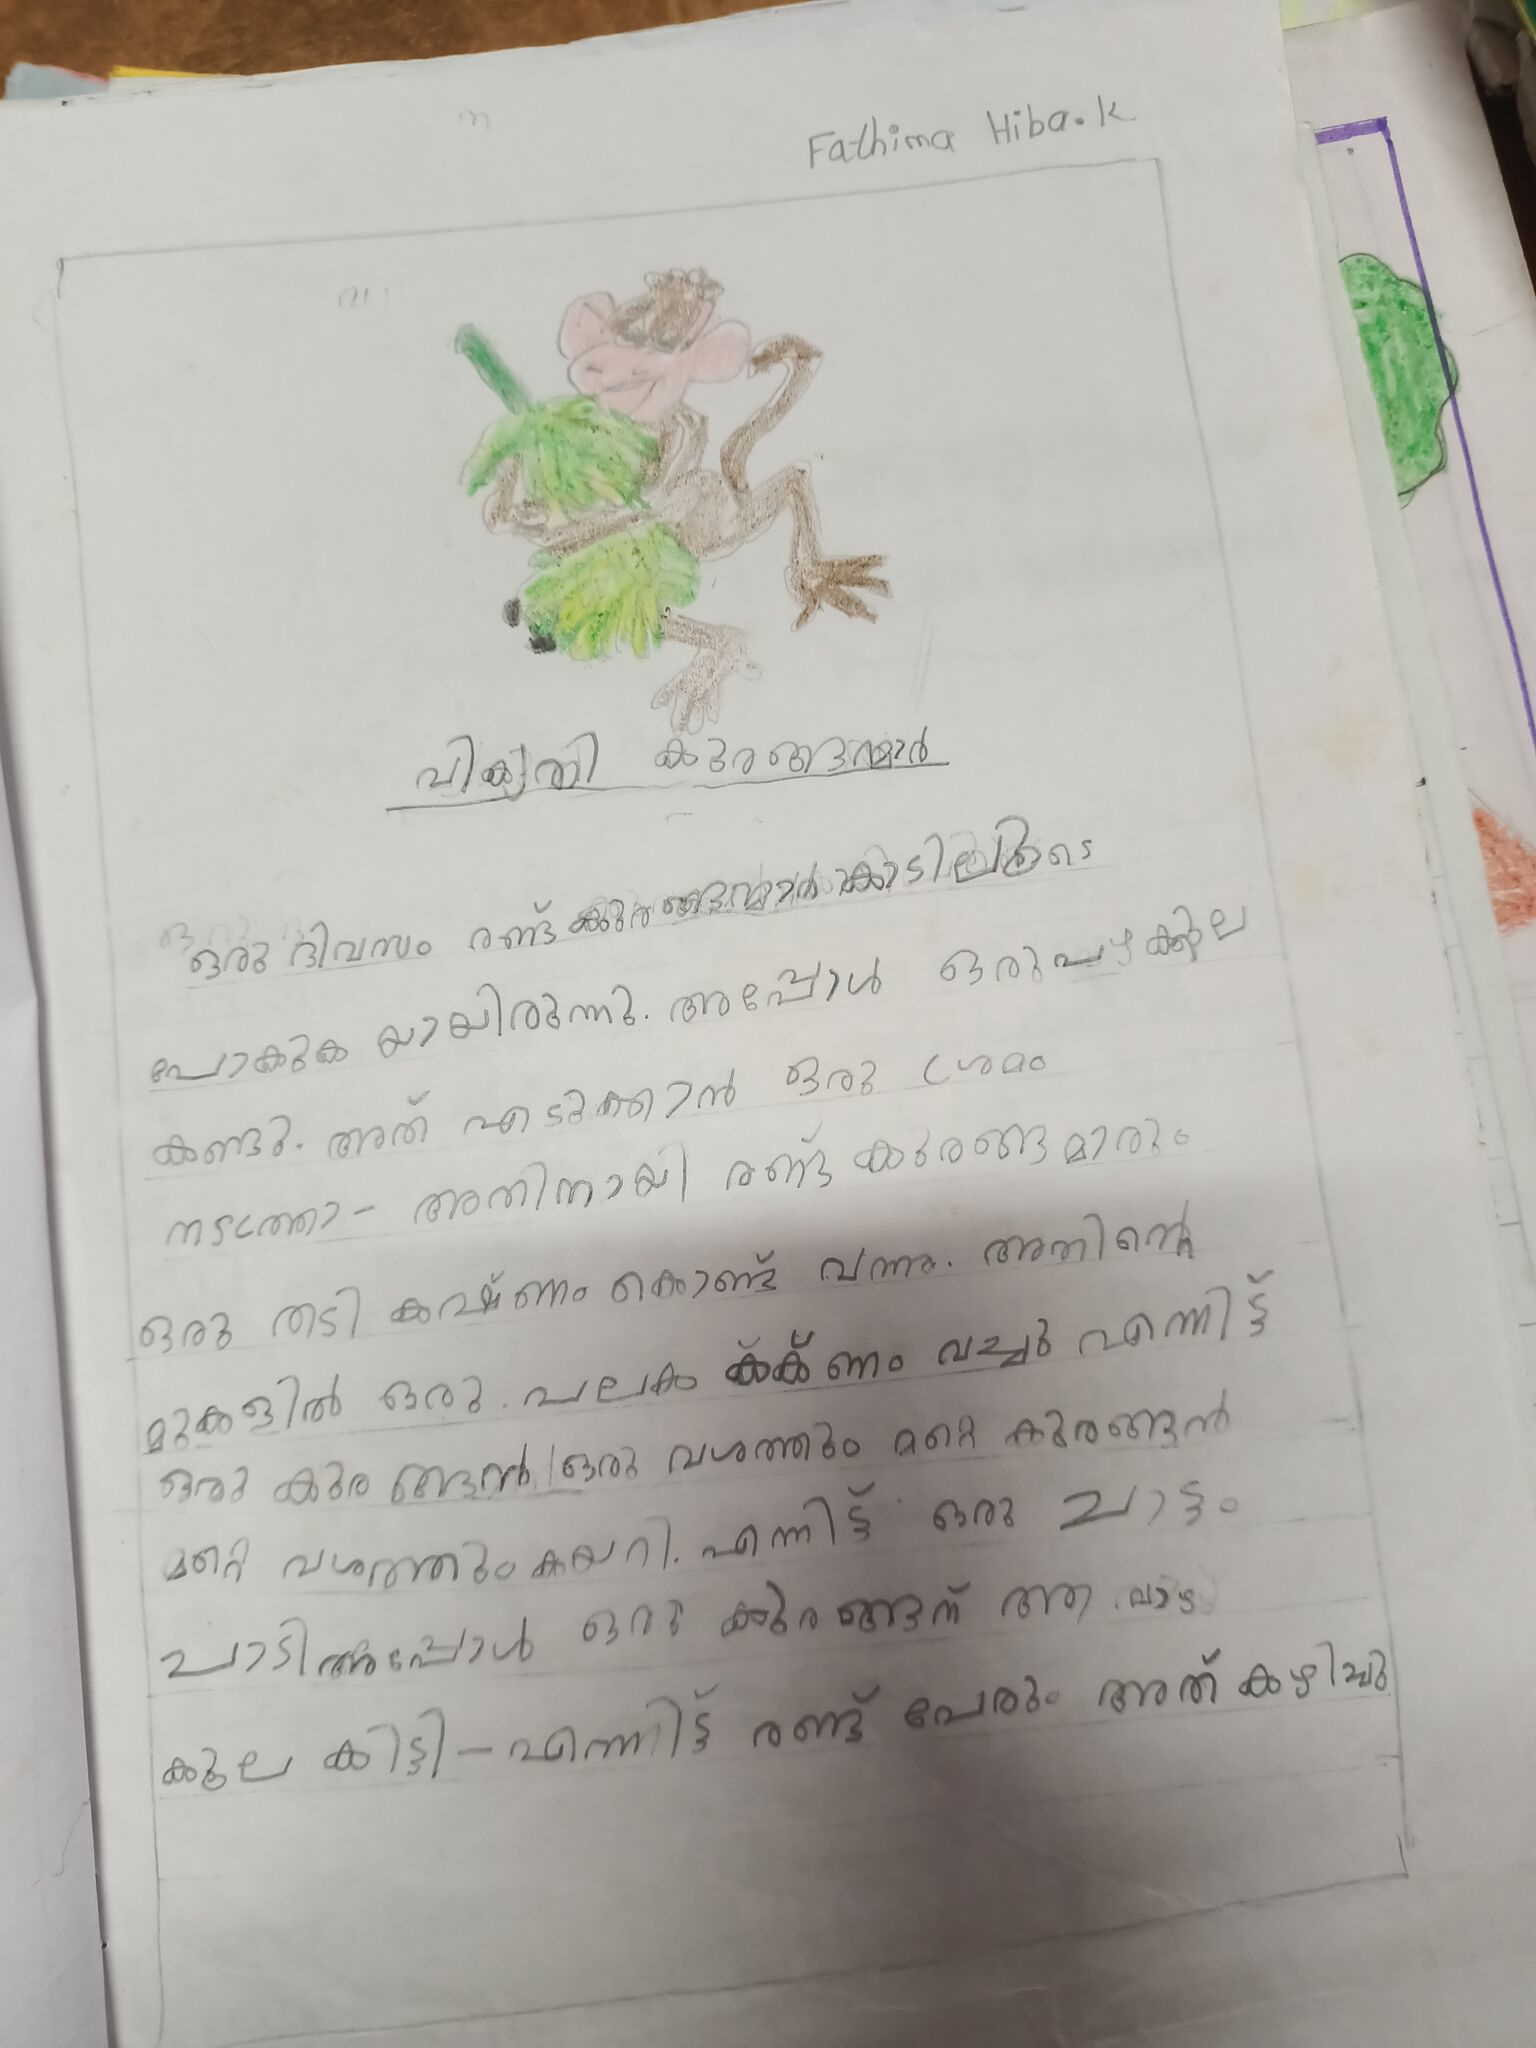 Fathima Hiba.K
വികൃതി കുരങ്ങന്മാർ
ഒരു ദിവസം രണ്ട് കുരങ്ങന്മാർ കാടിലൂടെ
പോകുക യായിരുന്നു. അപ്പോൾ ഒരു പഴക്കുല
കണ്ടു. അത് എടുക്കാൻ ഒരു ശ്രമം
നടത്താ - അതിനായി രണ്ട് കുരങ്ങമാരും
ഒരു തടി കഷ്ണം കൊണ്ട് വന്നു. അതിന്റെ
മുകളിൽ ഒരു പലക വച്ചു എന്നിട്ട്
ഒരു കുരങ്ങൻ ഒരു വശത്തും മറ്റെ കുരങ്ങൻ
മറ്റെ വശത്തും കയറി. എന്നിട്ട് ഒരു ചാട്ടം
ചാടി അപ്പോൾ ഒരു കുരങ്ങന് ആ വാഴ
കുല കിട്ടി - എന്നിട്ട് രണ്ട് പേരും അത് കഴിച്ചു